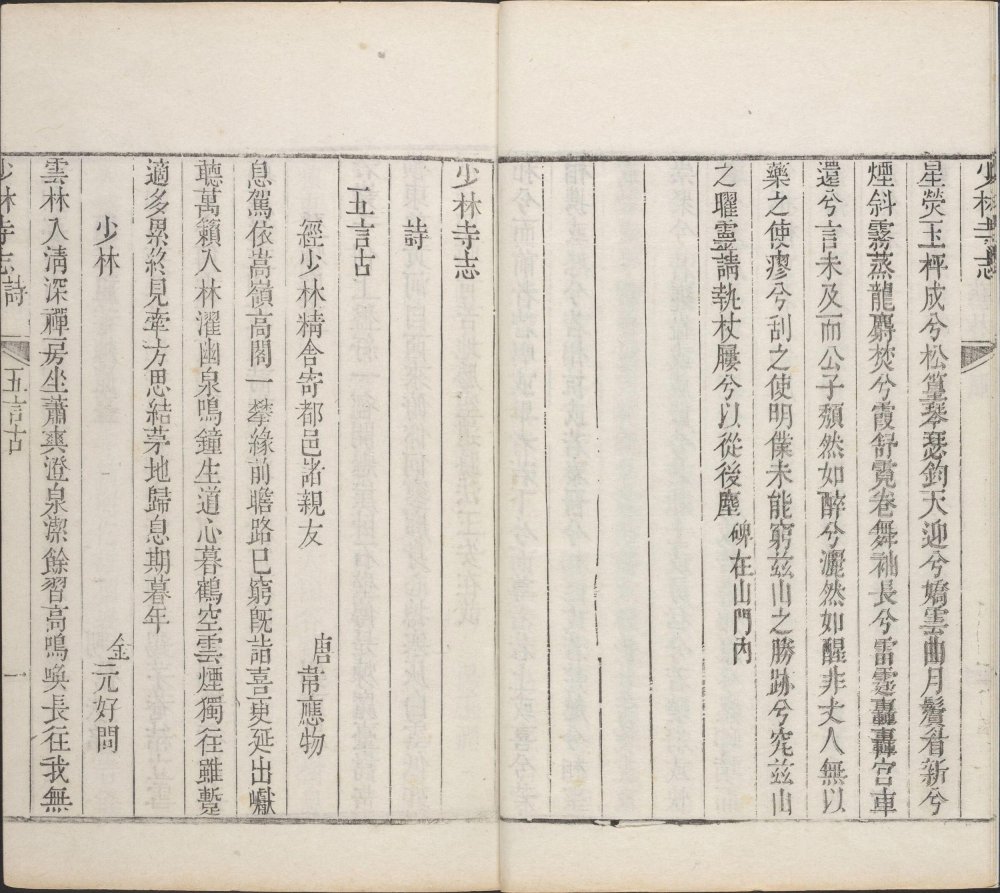 少林寺志
星熒玉枰成兮松篁琴瑟鈞天迎兮嬌雲曲月鬢眉新兮
煙斜霧蒸龍麝焚兮霞舒霓卷舞袖長兮雷霆轟轟宮車
還兮言未及而公子頽然如醉兮灑然如醒非丈人無以
藥之使瘳兮刮之使明僕未能窮茲山之勝跡兮究茲山
之曜靈請執杖屨兮以從後塵 碑在山門內
少林寺志
詩
五言古
經少林精舍寄都邑諸親友
唐 常應物
息駕依嵩嶺高閣一攀緣前瞻路已窮旣詣喜更延出巘
聽萬籟入林濯幽泉鳴鐘生道心暮鶴空雲煙獨往雖蹔
適多累終見牽方思結茅地歸息期暮年
少林
金 元好問
雲林入清深禪房坐蕭爽澄泉潔餘習高鳴喚長往我無
少林寺志 詩 五言古 一